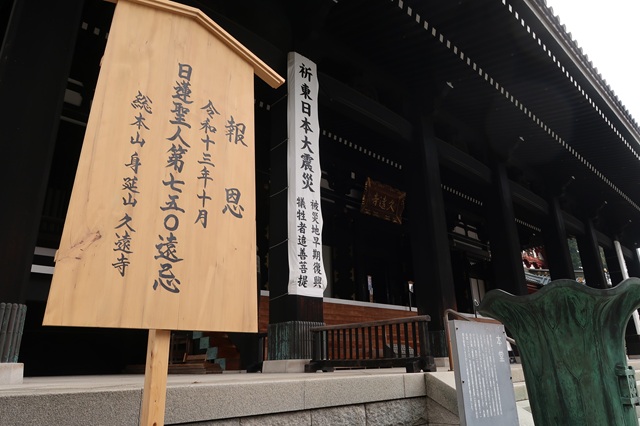 報恩
令和十三年十月
日蓮聖人第七五〇遠忌
総本山身延山久遠寺
祈東日本大震災
被災地早期復興
犠牲者追善菩提
久遠寺
本堂